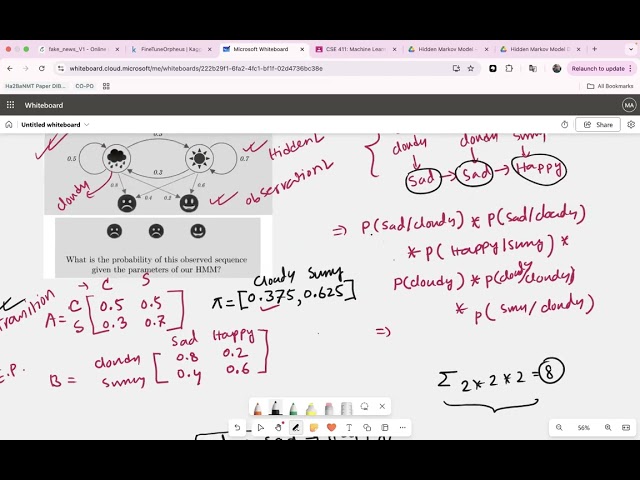 fake_news_V1 - Online
FineTuneOrpheus | Kagg
Microsoft Whiteboard
CSE 411: Machine Learn
Hidden Markov Model D
Hidden Markov Model D
whiteboard.cloud.microsoft/me/whiteboards/222b29f1-6fa2-4fc1-bf1f-02d4736bc38e
Relaunch to update
Ha2BaNMT Paper DIB...
CO-PO
All Bookmarks
Whiteboard
MA
Untitled whiteboard
Share
0.5
0.3
0.7
Hidden
cloudy
0.8
0.4
0.2
0.6
observation
cloudy cloudy sunny
Sad → Sad → Happy
⇒ P(sad/cloudy) * P(sad/cloudy)
* P(Happy|sunny) *
P(cloudy) * P(cloudy/cloudy)
* P(sunny/cloudy)
What is the probability of this observed sequence
given the parameters of our HMM?
Transition
→ C S
A = C [ 0.5 0.5
S 0.3 0.7 ]
cloudy sunny
π = [0.375, 0.625]
⇒
E.P.
sad Happy
B = cloudy [ 0.8 0.2
sunny 0.4 0.6 ]
Σ 2*2*2 = 8
56%